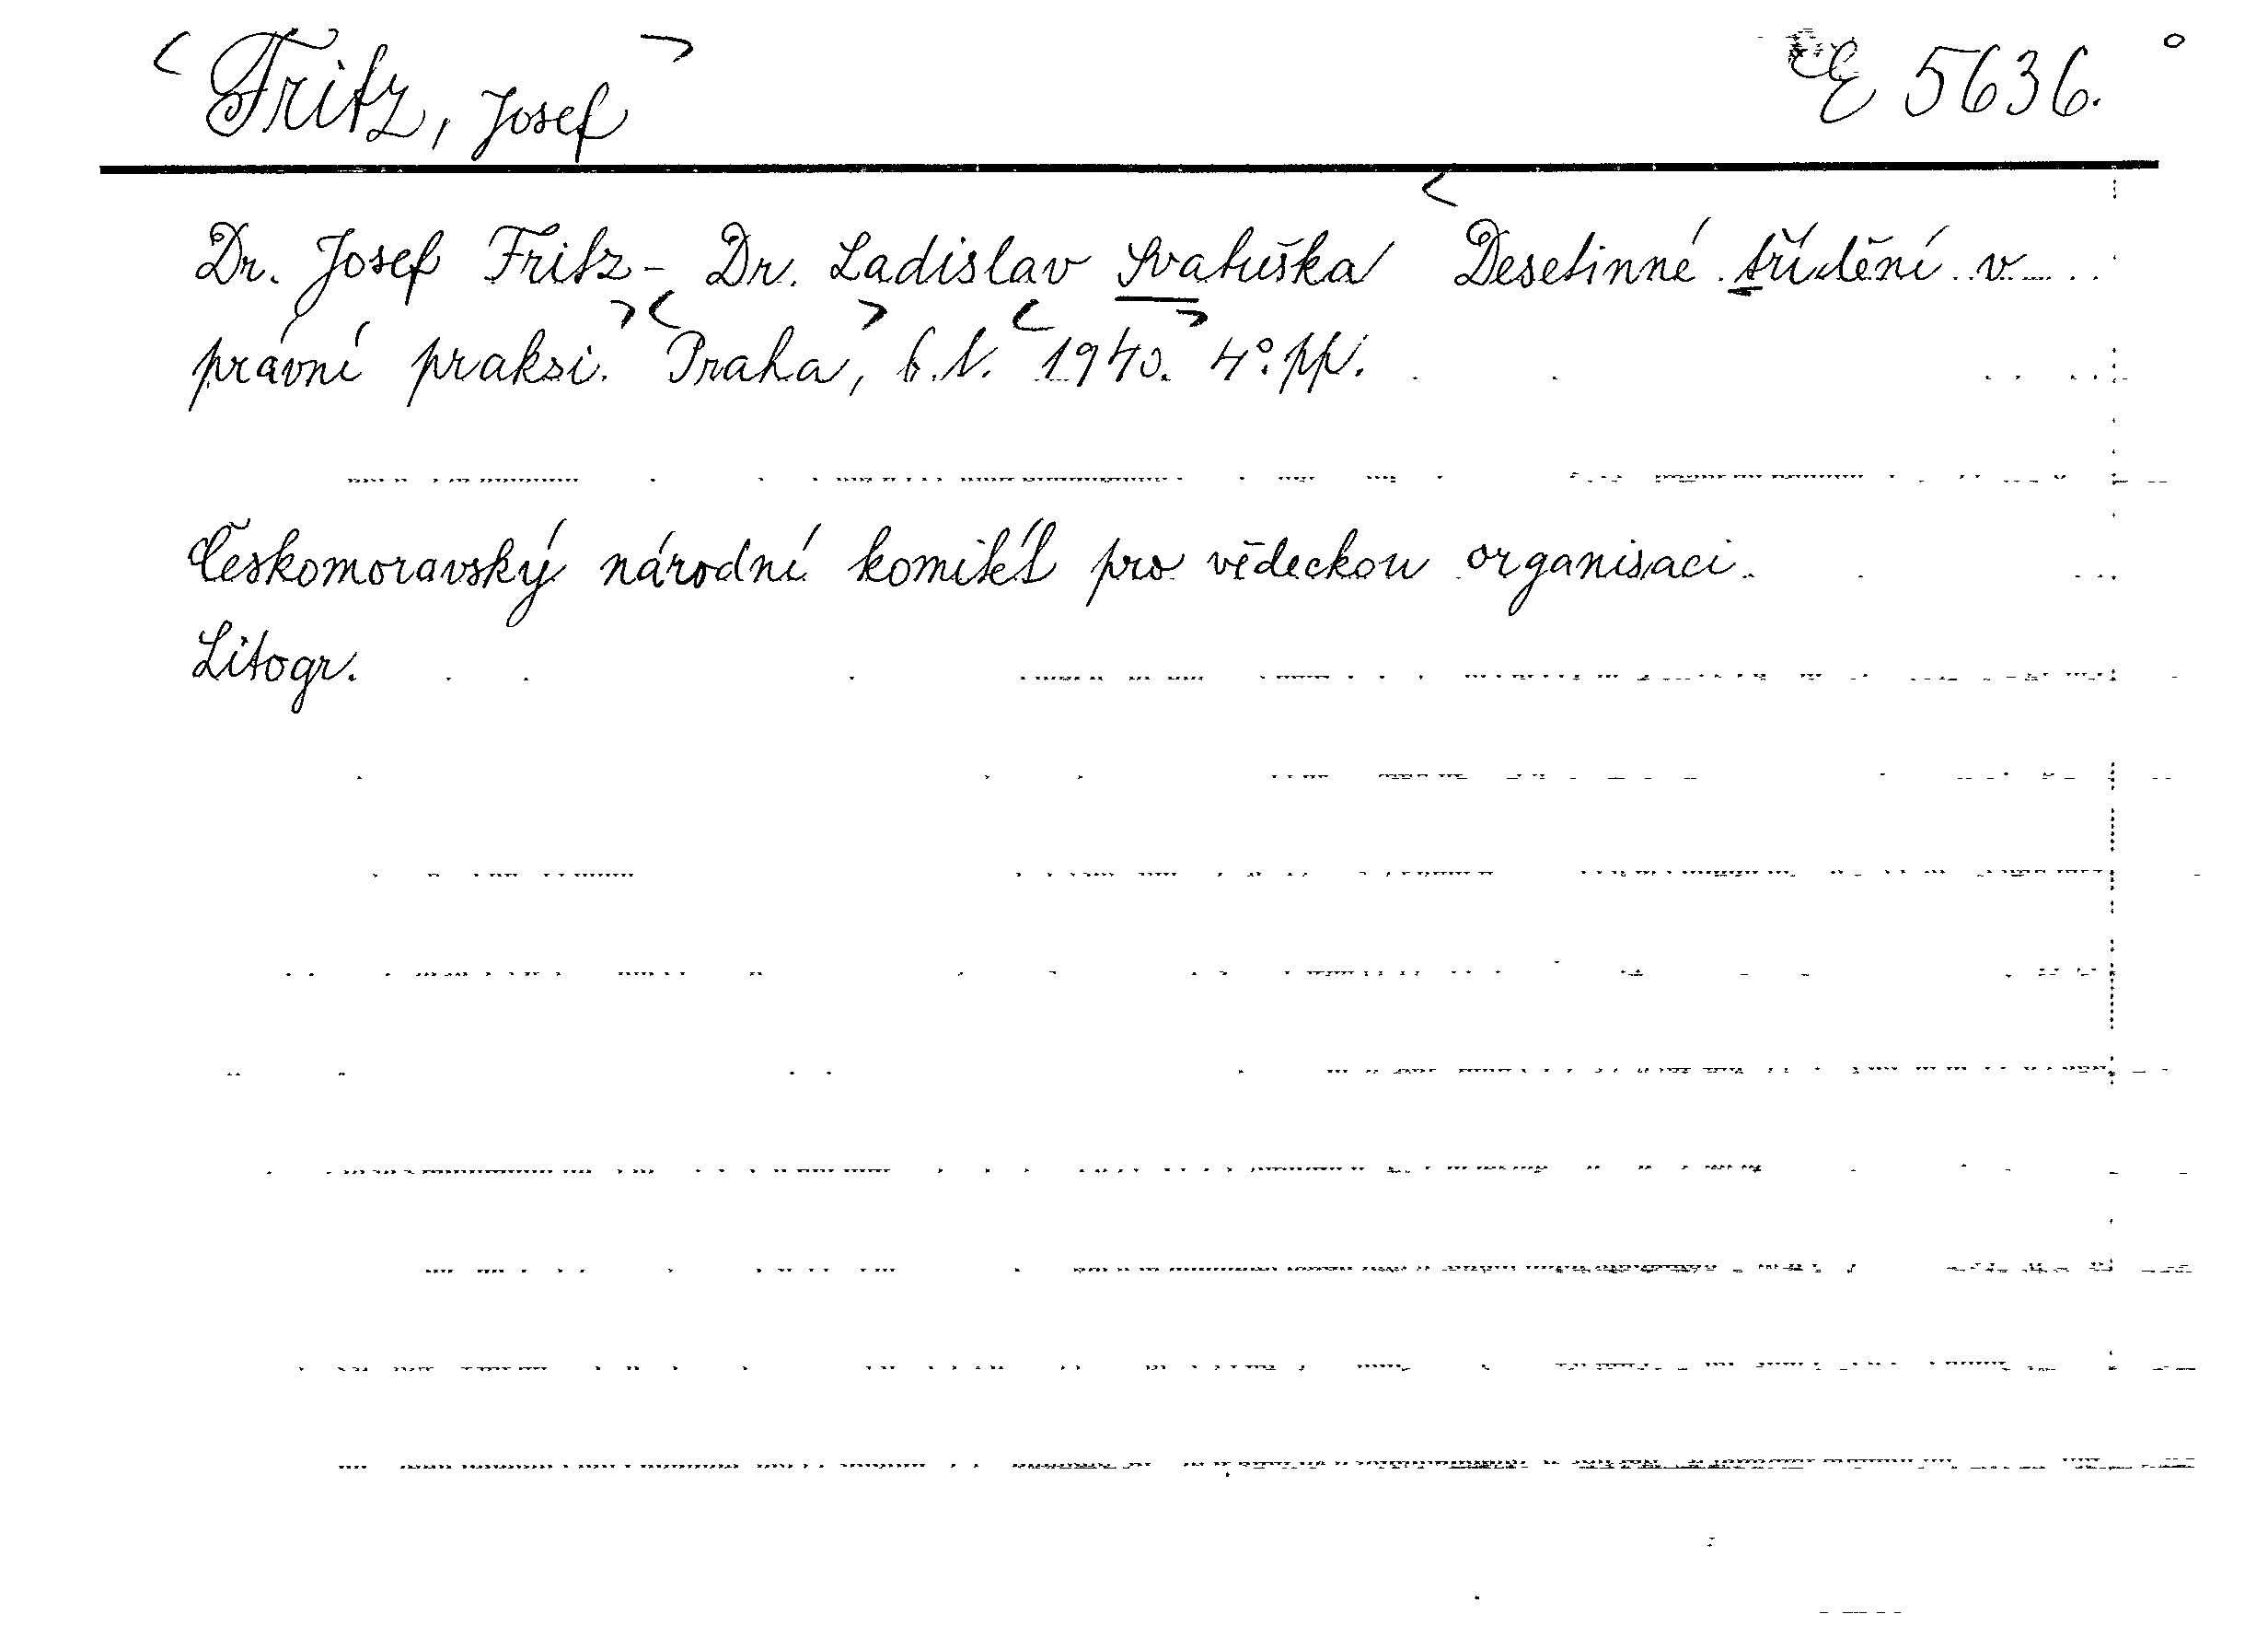 < Fritz, Josef >
E 5636.
Dr. Josef Fritz - Dr. Ladislav Svatuška < Desetinné třídění v
právní praksi. > < Praha, > b.t. < 1940. > 4°. pp.
Českomoravský národní komitét pro vědeckou organisaci.
Litogr.